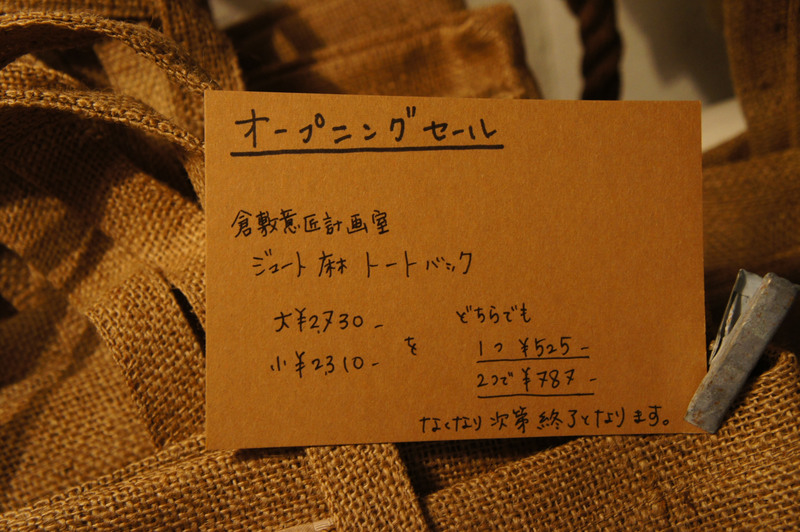 オープニングセール
倉敷意匠計画室
ジュート麻トートバック
大¥2,730- を どちらでも
小¥2,310- 1つ ¥525-
2つで ¥787-
なくなり次第終了となります。